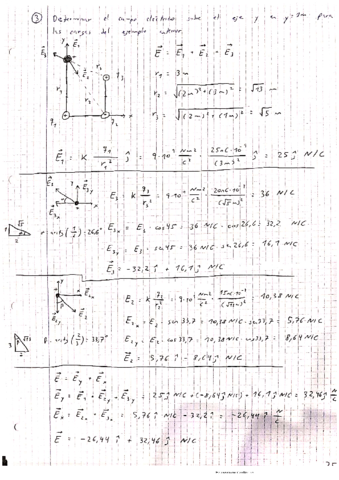 ③ Determinar el campo eléctrico sobre el eje y en y=3m para
las cargas del ejemplo anterior.
E⃗ = E⃗₁ + E⃗₂ + E⃗₃
r₁ = 3m
r₂ = √((2m)² + (3m)²) = √13 m
r₃ = √((2m)² + (1m)²) = √5 m
E⃗₁ = K q₁/r₁² ĵ = 9·10⁹ Nm²/C² · 25nC·10⁻⁹/(3m)² ĵ = 25 ĵ N/C
E₃ = K q₃/r₃² = 9·10⁹ Nm²/C² · 20nC·10⁻⁹/(√5m)² = 36 N/C
E₃ₓ = E₃ · cos 45 = 36 N/C · cos 26,6 = 32,2 N/C
E₃y = E₃ · sen 45 = 36 N/C · sen 26,6 = 16,1 N/C
E⃗₃ = -32,2 î + 16,1 ĵ N/C
E₂ = K q₂/r₂² = 9·10⁹ Nm²/C² · 15nC·10⁻⁹/(√13m)² = 10,38 N/C
E₂ₓ = E₂ · sen 33,7 = 10,38 N/C · sen 33,7 = 5,76 N/C
E₂y = E₂ · cos 33,7 = 10,38 N/C · cos 33,7 = 8,64 N/C
E⃗₂ = 5,76 î - 8,64 ĵ N/C
E⃗ = E⃗y + E⃗ₓ
E⃗y = E⃗₁ + E⃗₂y + E⃗₃y = 25 ĵ N/C + (-8,64 ĵ) N/C + 16,1 ĵ N/C = 32,46 ĵ N/C
E⃗ₓ = E⃗₂ₓ - E⃗₃ₓ = 5,76 î N/C - 32,2 î = -26,44 î N/C
E⃗ = -26,44 î + 32,46 ĵ N/C